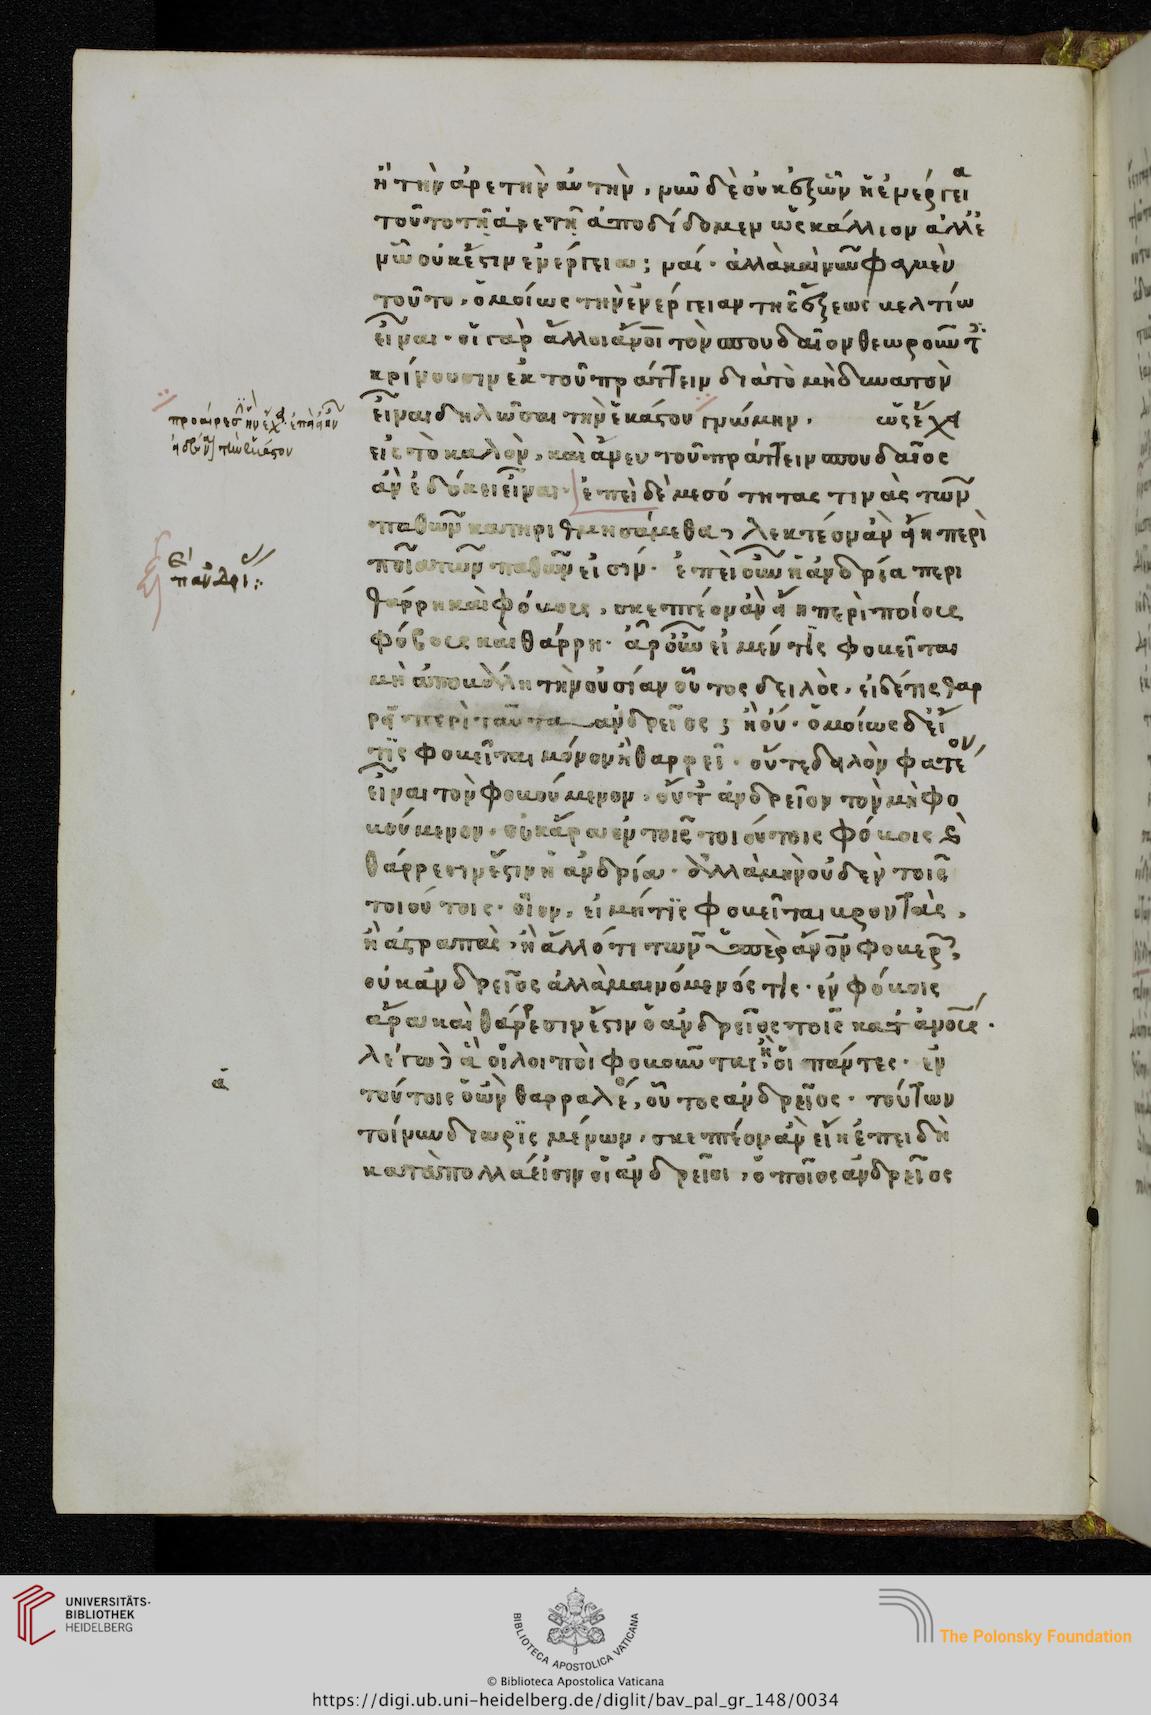 ἢ τὴν ἀρετὴν αὐτὴν. νῦν δὲ οὐκ ἐξῶν ἡ ἐνέργεια
τοῦτο τῇ ἀρετῇ ἀποδίδομεν ὡς κάλλιον
νῦν οὐκ ἔστιν ἐνέργεια; ναί. ἀλλὰ καὶ νῦν φαμὲν
τοῦτο. ὁμοίως τὴν ἐνέργειαν τῆς ἕξεως βελτίω
εἶναι. οἱ γὰρ ἄλλοι ἄνοι τὸν σπουδαῖον θεωροῦντ
κρίνουσιν ἐκ τοῦ πράττειν διὰ τὸ μὴ δυνατὸν
εἶναι δηλῶσαι τὴν ἑκάστου γνώμην. ὡς ἔχει
εἰς τὸ καλόν. καὶ ἄνευ τοῦ πράττειν σπουδαῖος
ἂν ἐδόκει εἶναι. ἐπεὶ δὲ μεσότητας τινὰς τῶν
παθῶν κατηριθμησάμεθα, λεκτέον ἂν εἴη περὶ
ποῖα τῶν παθῶν εἰσίν. ἐπεὶ οὖν ἡ ἀνδρία περι
θάρρη καὶ φόβους, σκεπτέον ἂν εἴη περὶ ποίους
φόβους καὶ θάρρη. ἆρ οὖν εἰ μέν τις φοβεῖται
μὴ ἀποβάλῃ τὴν οὐσίαν οὗτος δειλὸς. εἰ δέ τις θαρ
ρεῖ περὶ ταῦτα ἀνδρεῖος; ἢ οὔ. ὁμοίως δὲ εἴ
τις φοβεῖται νόσον ἢ θαρρεῖ. οὔτε δειλὸν φατέον
εἶναι τὸν φοβούμενον. οὔτ ἀνδρεῖον τὸν μὴ φο
βούμενον. οὐκ ἄρα ἐν τοῖς τοιούτοις φόβοις καὶ
θάρρεσιν ἔστιν ἡ ἀνδρία. ἀλλὰ μὴν οὐδὲν τοῖς
τοιούτοις. οἷον, εἰ μή τις φοβεῖται βροντὰς,
ἢ ἀστραπὰς, ἢ ἄλλό τι τῶν ὑπὲρ ἄνον φοβερῶν,
οὐκ ἀνδρεῖος ἀλλὰ μαινόμενός τις. ἐν φόβοις
ἄρα καὶ θάρρεσιν ἔστιν ὁ ἀνδρεῖος τοῖς κατ ἄνον.
λέγω δὲ ἃ οἱ λοιποὶ φοβοῦνται, ἢ οἱ πάντες. ἐν
τούτοις ὁ ὢν θαρραλέος, οὗτος ἀνδρεῖος. τούτων
τοίνυν διωρισμένων, σκεπτέον ἂν εἴη ἐπειδὴ
κατὰ πολλὰ εἰσὶν οἱ ἀνδρεῖοι, ὁ ποῖος ἀνδρεῖος
περὶ ἀνδρί:
UNIVERSITÄTS-
BIBLIOTHEK
HEIDELBERG
BIBLIOTECA APOSTOLICA VATICANA
© Biblioteca Apostolica Vaticana
The Polonsky Foundation
https://digi.ub.uni-heidelberg.de/diglit/bav_pal_gr_148/0034